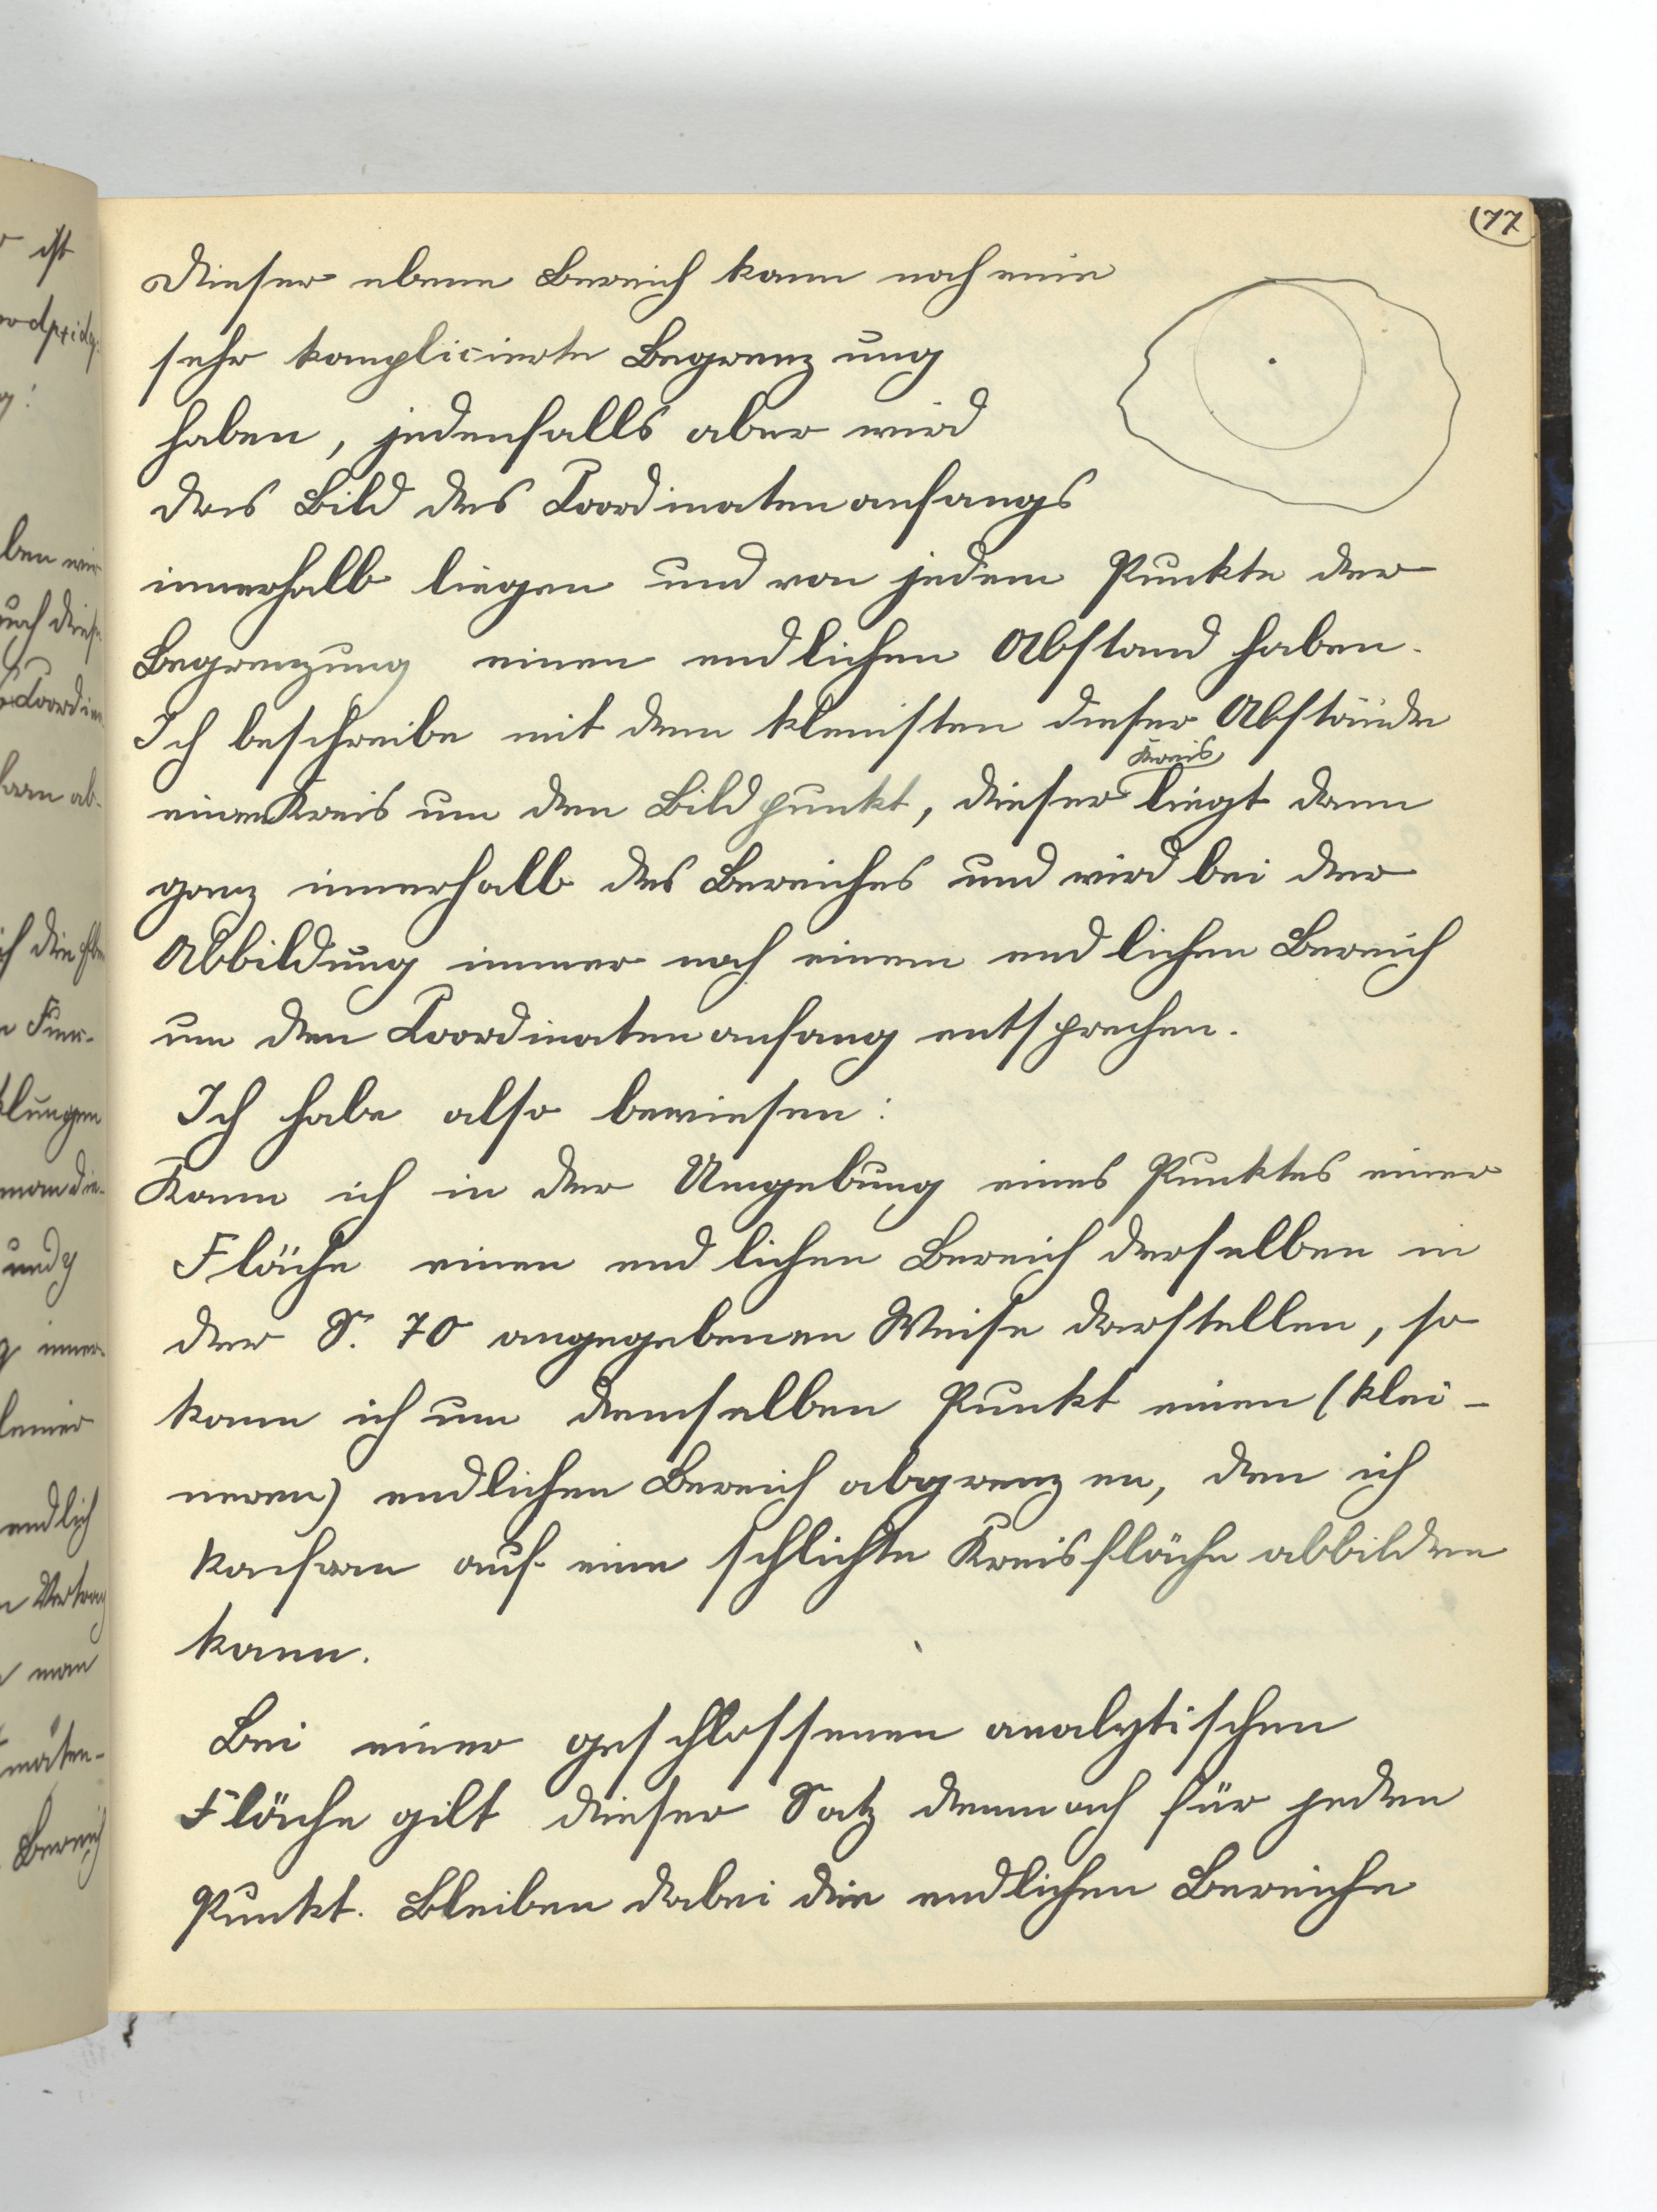 (77
Dieser ebene Bereich kann noch eine
sehr komplicierte Begrenzung
haben, jedenfalls aber wird
das Bild des Coordinatenanfangs
innerhalb liegen und von jedem Punkte der
Begrenzung einen endlichen Abstand haben.
Ich beschreibe mit dem kleinsten dieser Abstände
Kreis
einen Kreis um den Bildpunkt, dieser liegt dann
ganz innerhalb des Bereiches und wird bei der
Abbildung immer noch einem endlichen Bereich
um den Coordinatenanfang entsprechen.
Ich habe also bewiesen:
Kann ich in der Umgebung eines Punktes einer
Fläche einen endlichen Bereich derselben in
der S. 70 angegebenen Weise darstellen, so
kann ich um denselben Punkt einen (klei-
neren) endlichen Bereich abgrenzen, den ich
konform auf eine schlichte Kreisfläche abbilden
kann.
Bei einer geschlossenen analytischen
Fläche gilt dieser Satz demnach für jeden
Punkt. Bleiben dabei die endlichen Bereiche